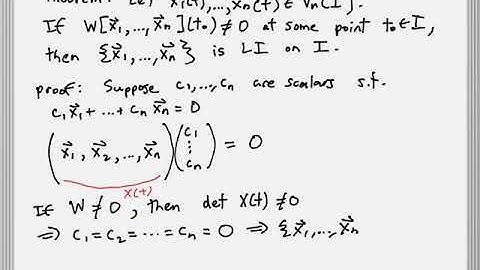 Theorem: Let x⃗₁(t),...,x⃗ₙ(t) ∈ Vₙ(I).
If W[x⃗₁,...,x⃗ₙ](t₀) ≠ 0 at some point t₀∈I,
then {x⃗₁,...,x⃗ₙ} is LI on I.
proof: Suppose c₁,...,cₙ are scalars s.t.
c₁x⃗₁ + ... + cₙx⃗ₙ = 0
(x⃗₁, x⃗₂, ..., x⃗ₙ)(c₁ ⋮ cₙ) = 0
X(t)
If W ≠ 0, then det X(t) ≠ 0
⇒ c₁ = c₂ = ... = cₙ = 0 ⇒ {x⃗₁,...,x⃗ₙ